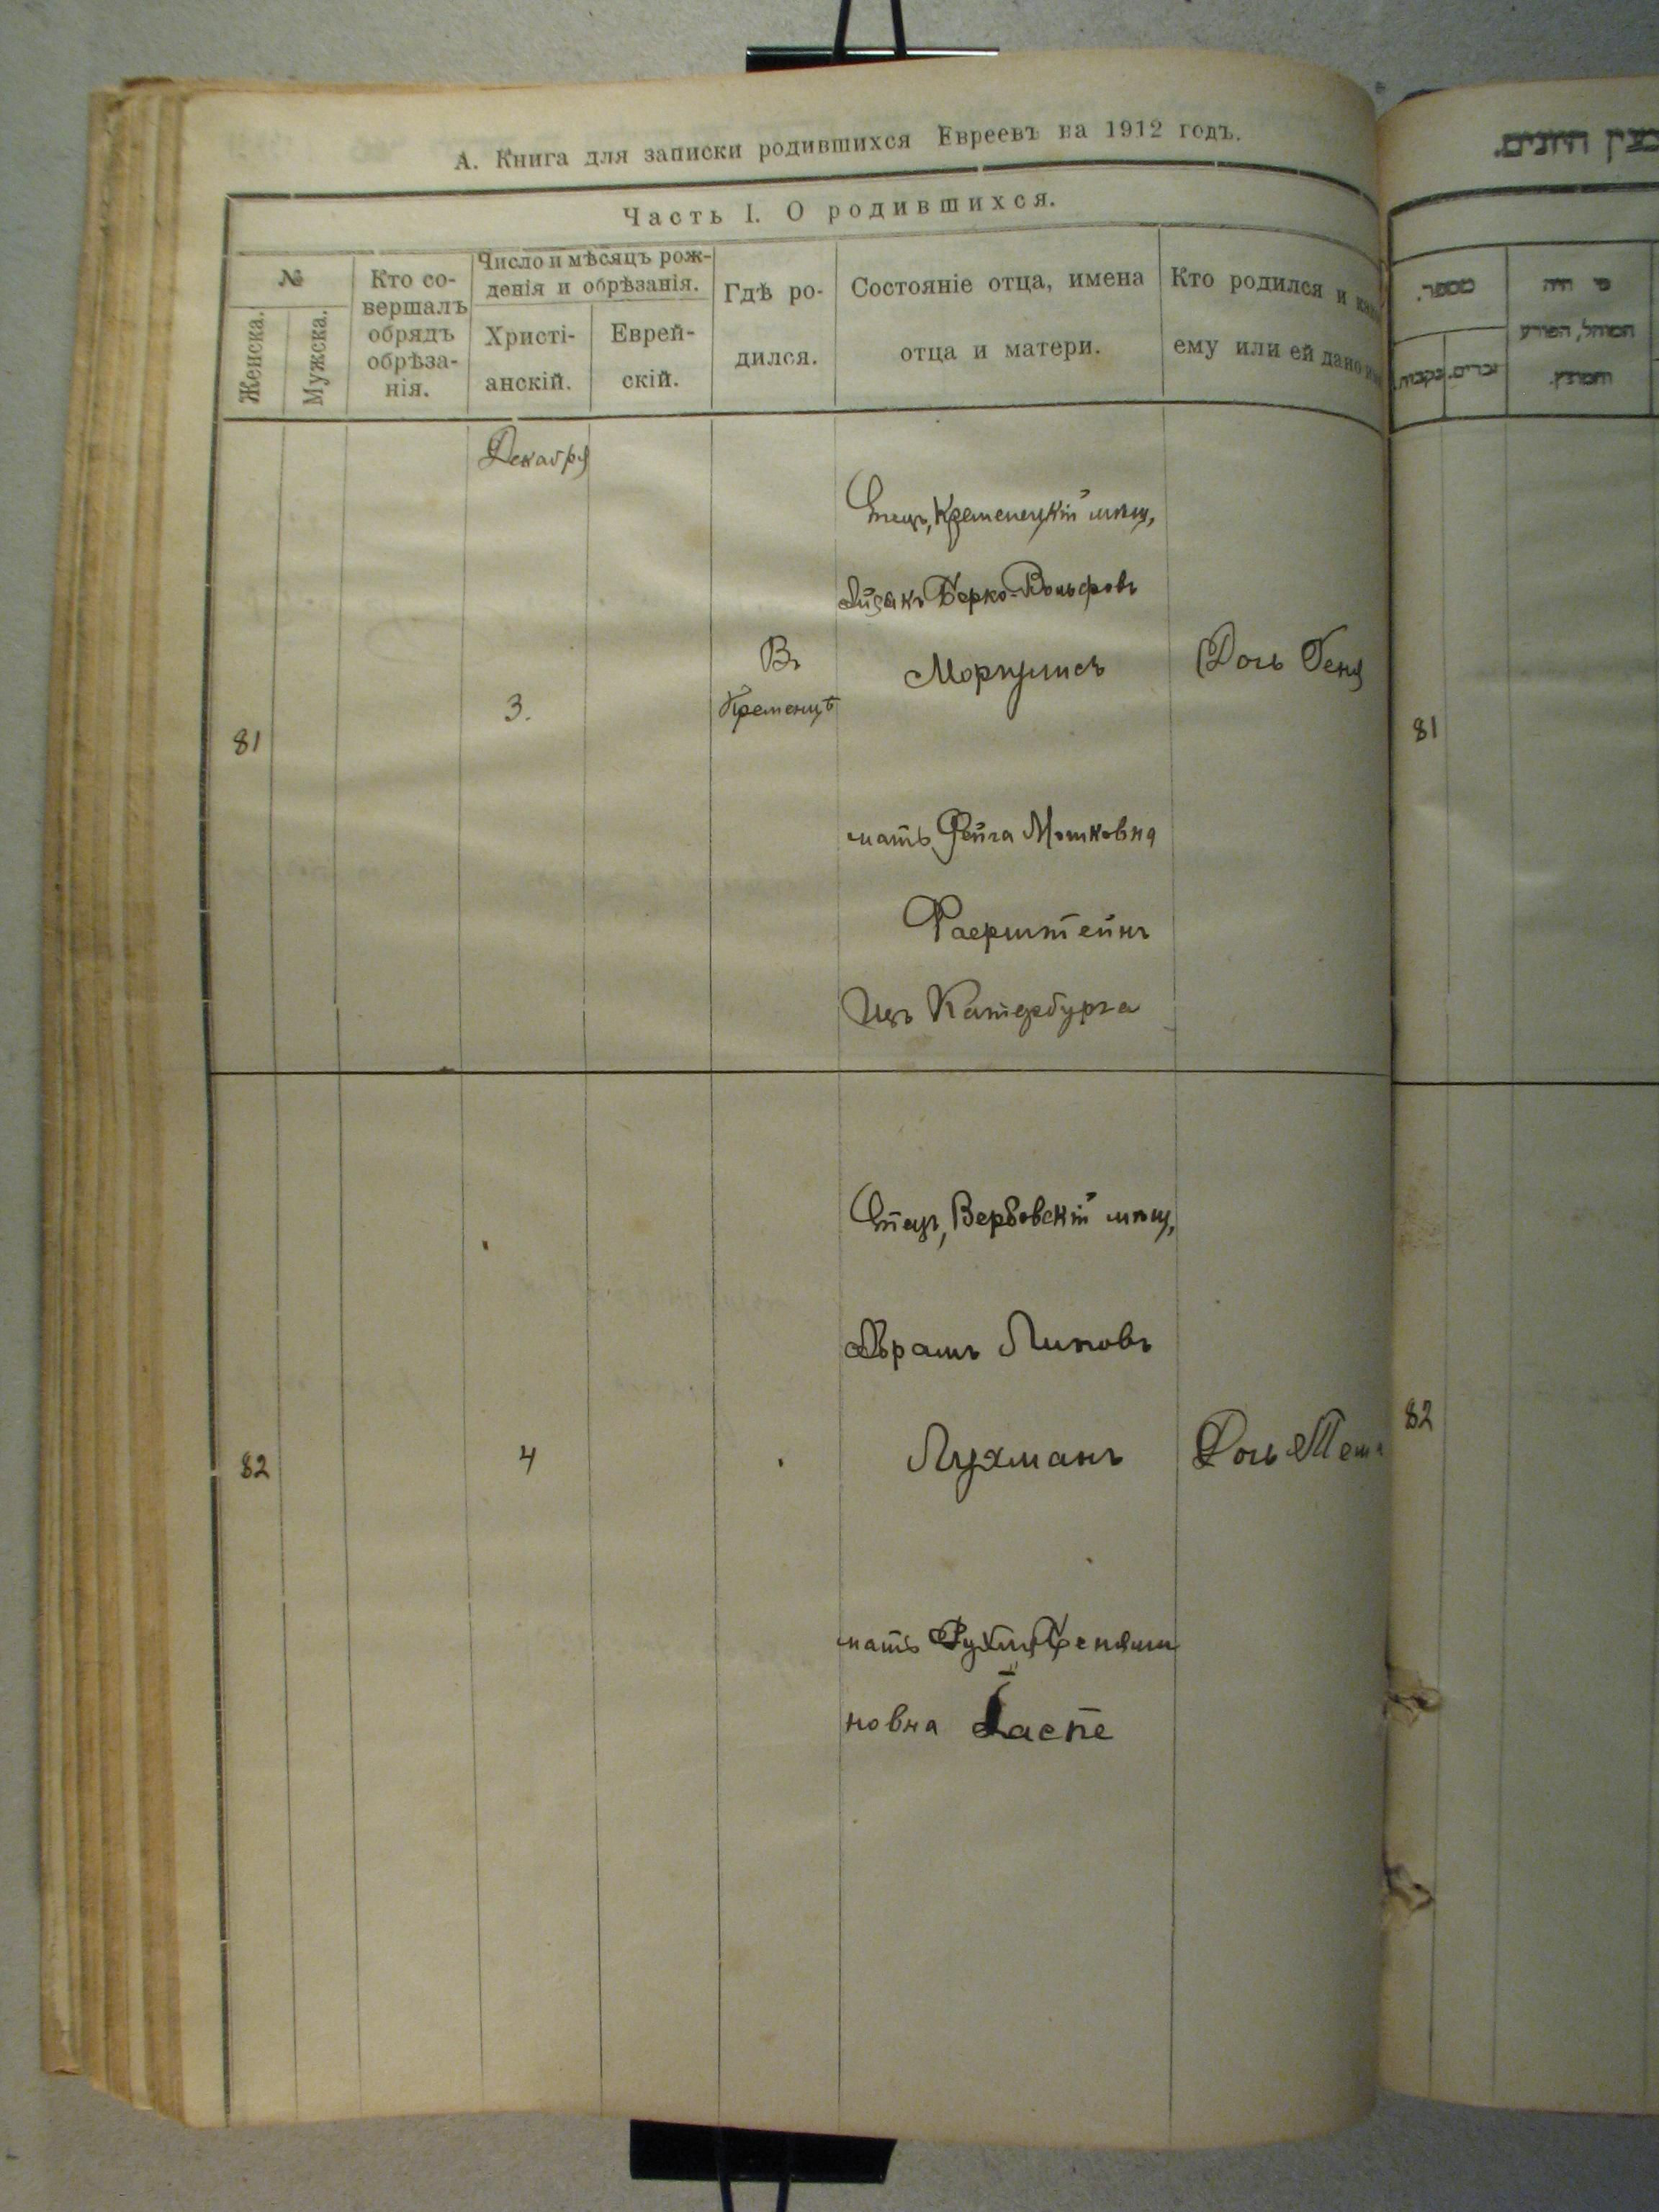 А. Книга для записки родившихся Евреевъ на 1912 годъ.
Часть I. О родившихся.
№
Женска.
Мужска.
Кто со-
вершалъ
обрядъ
обрѣза-
нія.
Число и мѣсяцъ рож-
денія и обрѣзанія.
Христі-
анскій.
Еврей-
скій.
Гдѣ ро-
дился.
Состояніе отца, имена
отца и матери.
Кто родился и
ему или ей дано
Декабря
81
3.
Въ
Кременцѣ
Отецъ, Кременецкій мѣщ,
Айзакъ Берко-Вольфовъ
Моргулисъ
мать Фейга Мошковна
Фаерштейнъ
Изъ Катербурга
Дочь Геня
82
4
Отецъ, Вербовскій мѣщ,
Абрамъ Липовъ
Лухманъ
мать
новна
Дочь
חלק
היונים.
מספר.
נקבות.
זכרים.
מי היה
המוהל, הפורע
והמוצץ.
81
82